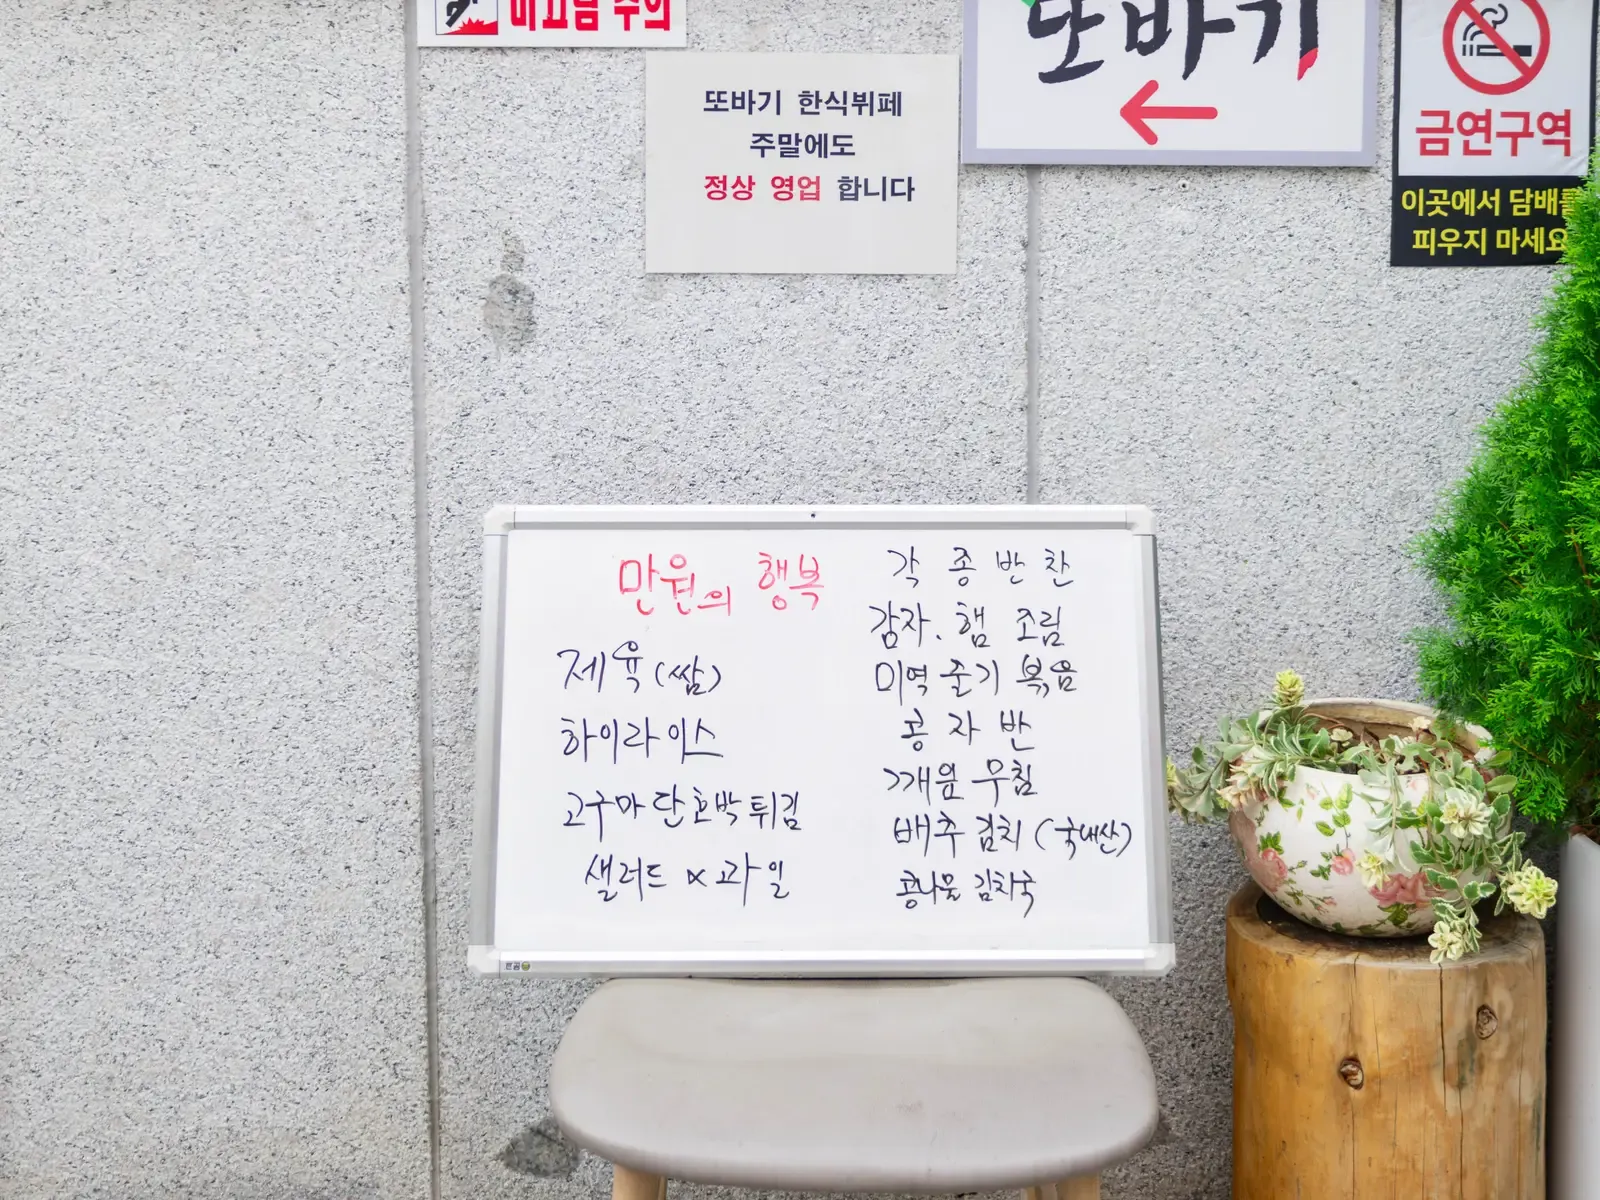 미끄럼 주의
또바기 한식뷔페
주말에도
정상 영업 합니다
또바기
금연구역
이곳에서 담배를
피우지 마세요
만원의 행복
제육(쌈)
하이라이스
고구마 단호박 튀김
샐러드 & 과일
각종반찬
감자.햄 조림
미역줄기 볶음
콩자반
무침
배추김치 (국내산)
콩나물 김치국